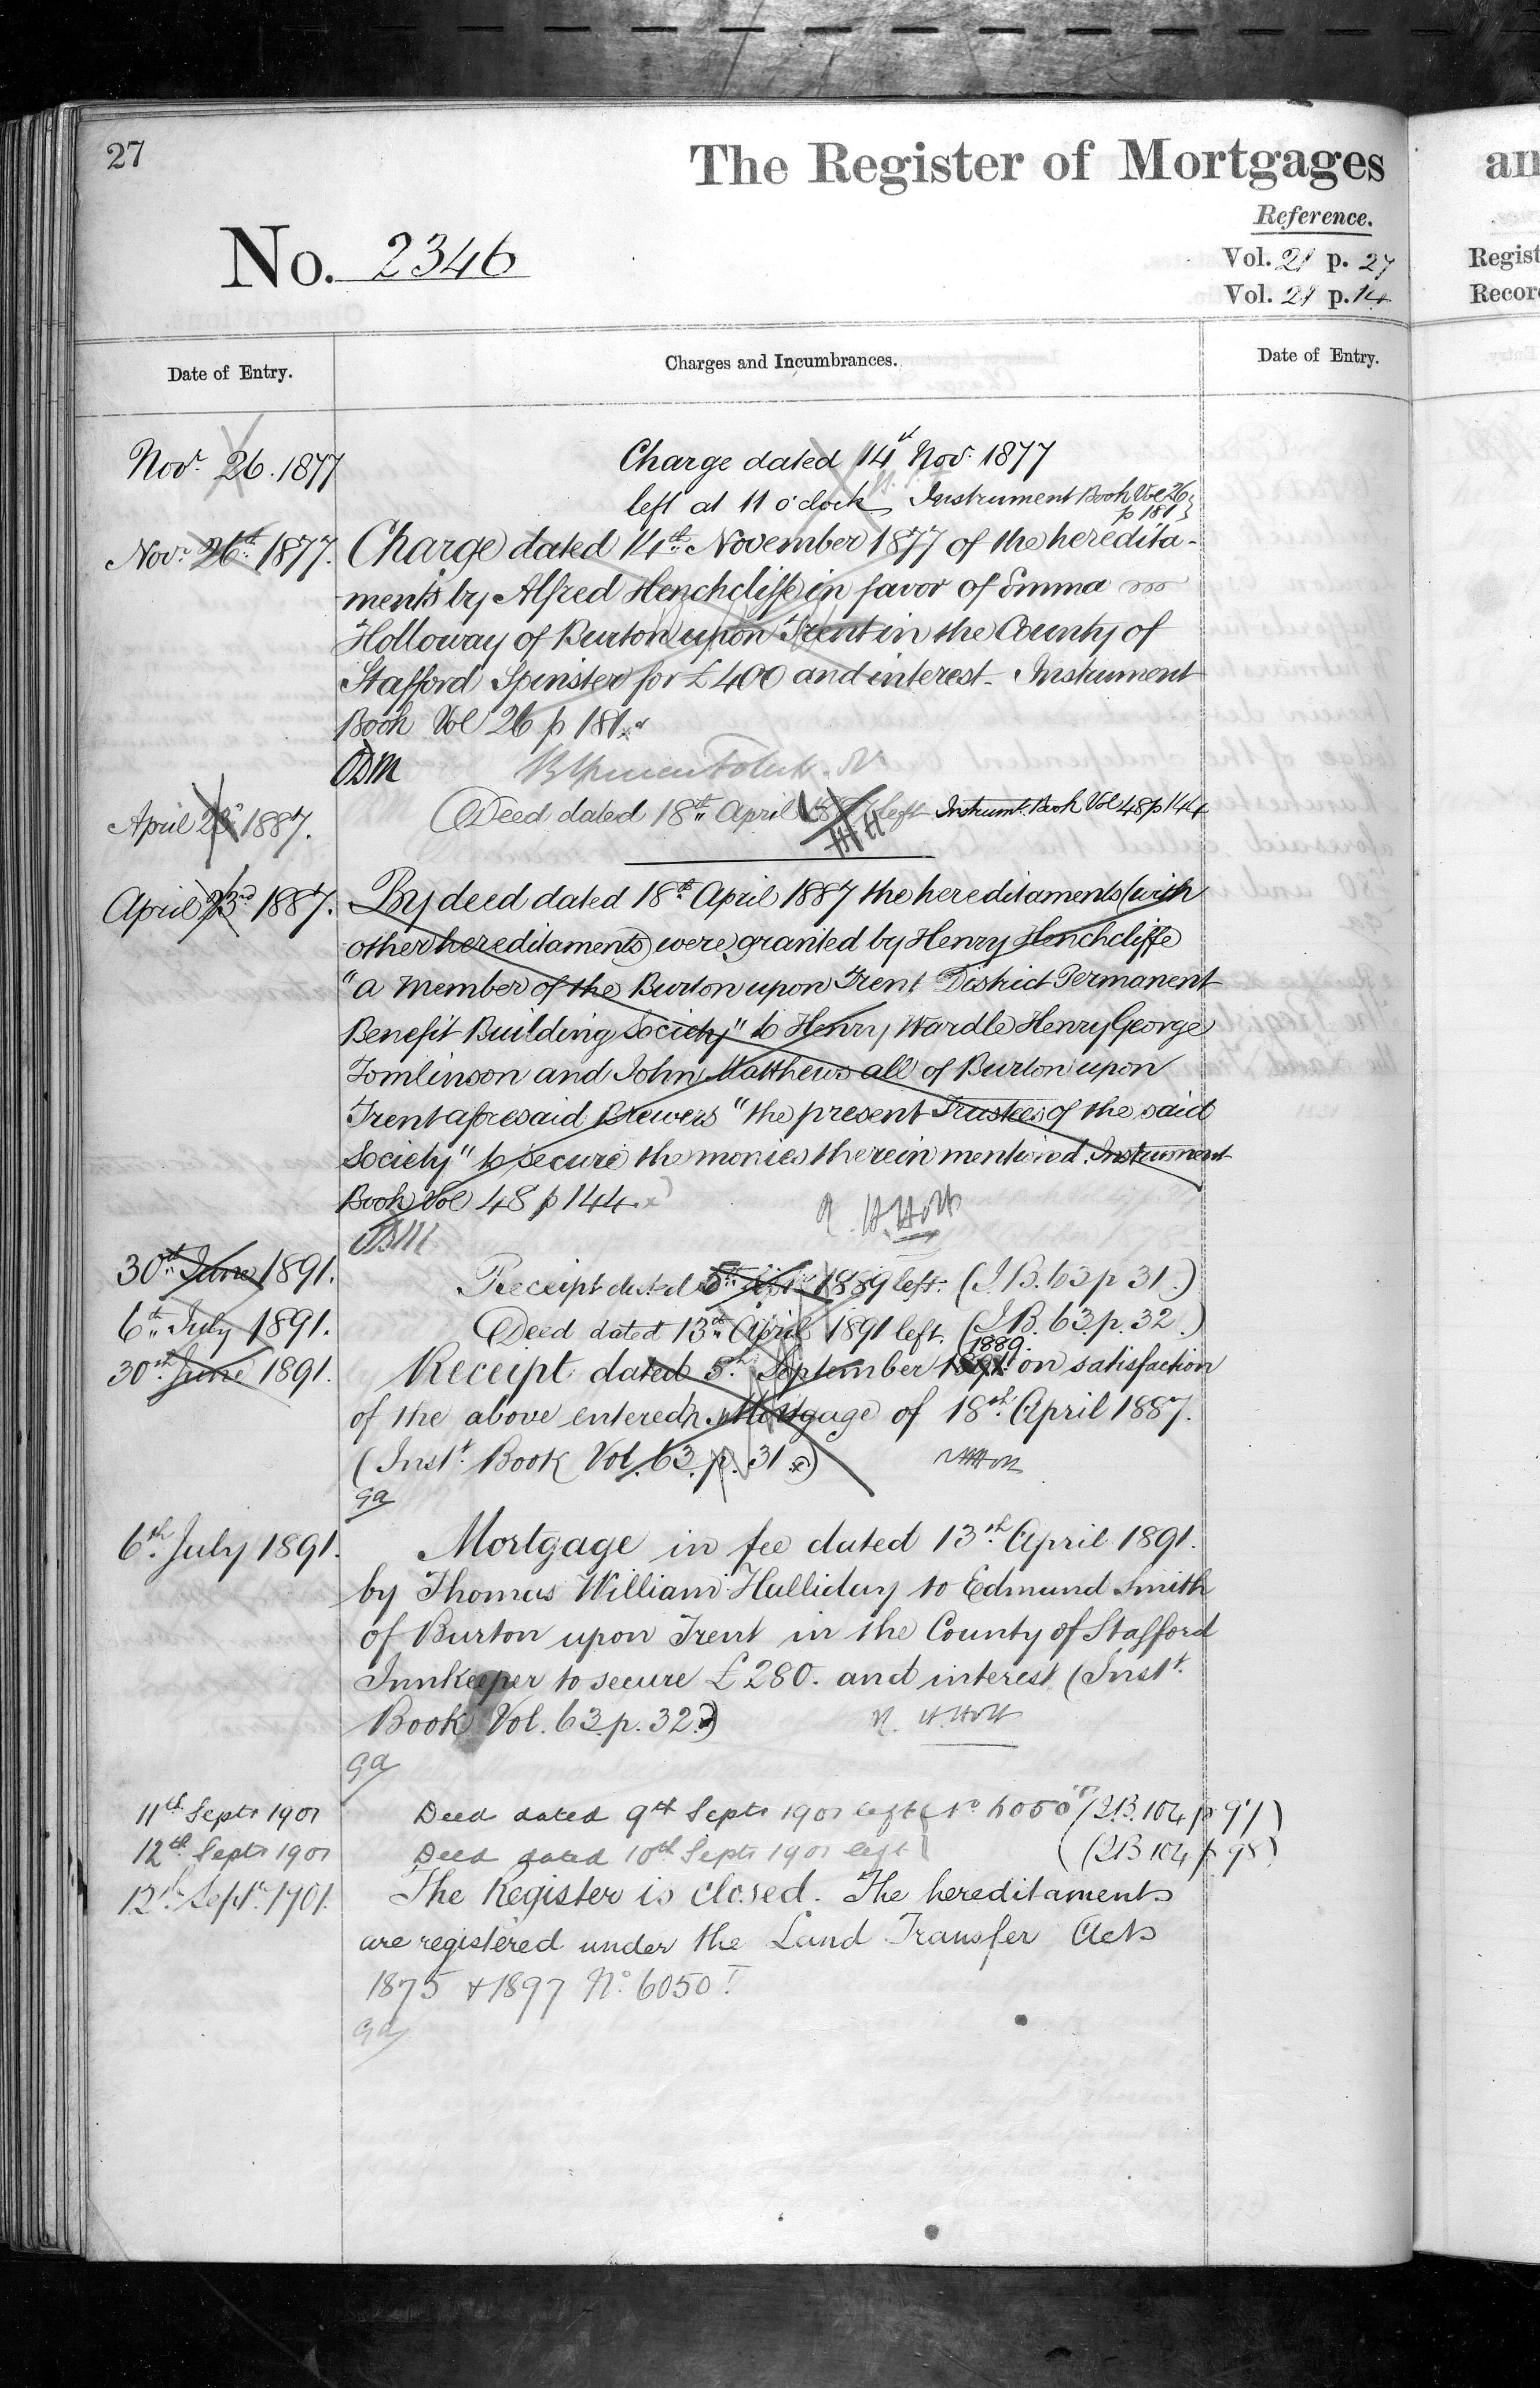 27
The Register of Mortgages
an
Reference.
No. 2346
Vol. 21 p. 27
Vol. 21 p. 14
Regist
Recor
Date of Entry.
Charges and Incumbrances.
Date of Entry.
Novr. 26. 1877
Charge dated 14th Nov. 1877
left at 11 o'clock Instrument Book Vol 26
p 181
Novr. 26th 1877.
Charge dated 14th November 1877 of the heredita-
ments by Alfred Henchcliffe in favor of Emma
Holloway of Burton upon Trent in the County of
Stafford Spinster for £400 and interest - Instrument
Book Vol 26 p 181.
April 23rd 1887.
Deed dated 18th April 1887 left Instrumt. Book Vol 48 p 144
April 23rd 1887.
By deed dated 18th April 1887 the hereditaments (with
other hereditaments) were granted by Henry Henchcliffe
"a Member of the Burton upon Trent District Permanent
Benefit Building Society" to Henry Wardle Henry George
Tomlinson and John Matthews all of Burton upon
Trent aforesaid Brewers "the present Trustees of the said
Society" to secure the monies therein mentioned. Instrument
Book Vol 48 p 144.
30th June 1891.
Receipt dated 5th 1889 left. (I.B. 63 p 31.)
6th July 1891.
Deed dated 13th April 1891 left. (I.B. 63. p. 32.)
1889.
30th June 1891.
Receipt dated 5th September 1891 on satisfaction
of the above entered Mortgage of 18th April 1887.
(Instt. Book Vol. 63. p. 31.)
ga
6th July 1891.
Mortgage in fee dated 13th April 1891.
by Thomas William Halliday to Edmund Smith
of Burton upon Trent in the County of Stafford
Innkeeper to secure £280. and interest (Instt.
Book Vol. 63. p. 32.)
ga
11th Septr 1901
Deed dated 9th Septr 1901 left (No 6050 (I.B. 104 p 97)
12th Septr 1901
Deed dated 10th Septr 1901 left (I.B 104 p 98)
12th Septr. 1901.
The Register is closed. The hereditaments
are registered under the Land Transfer Acts
1875 & 1897 No. 6050 I.
ga